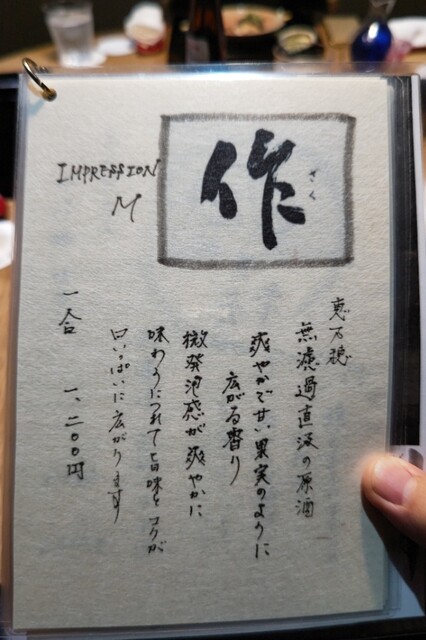 作
ざく
IMPRESSION
M
恵乃智
無濾過直汲の原酒
爽やかで甘い果実のように
広がる香り
微発泡感が爽やかに
味わうにつれて旨味とコクが
口いっぱいに広がります
一合 一、二〇〇円